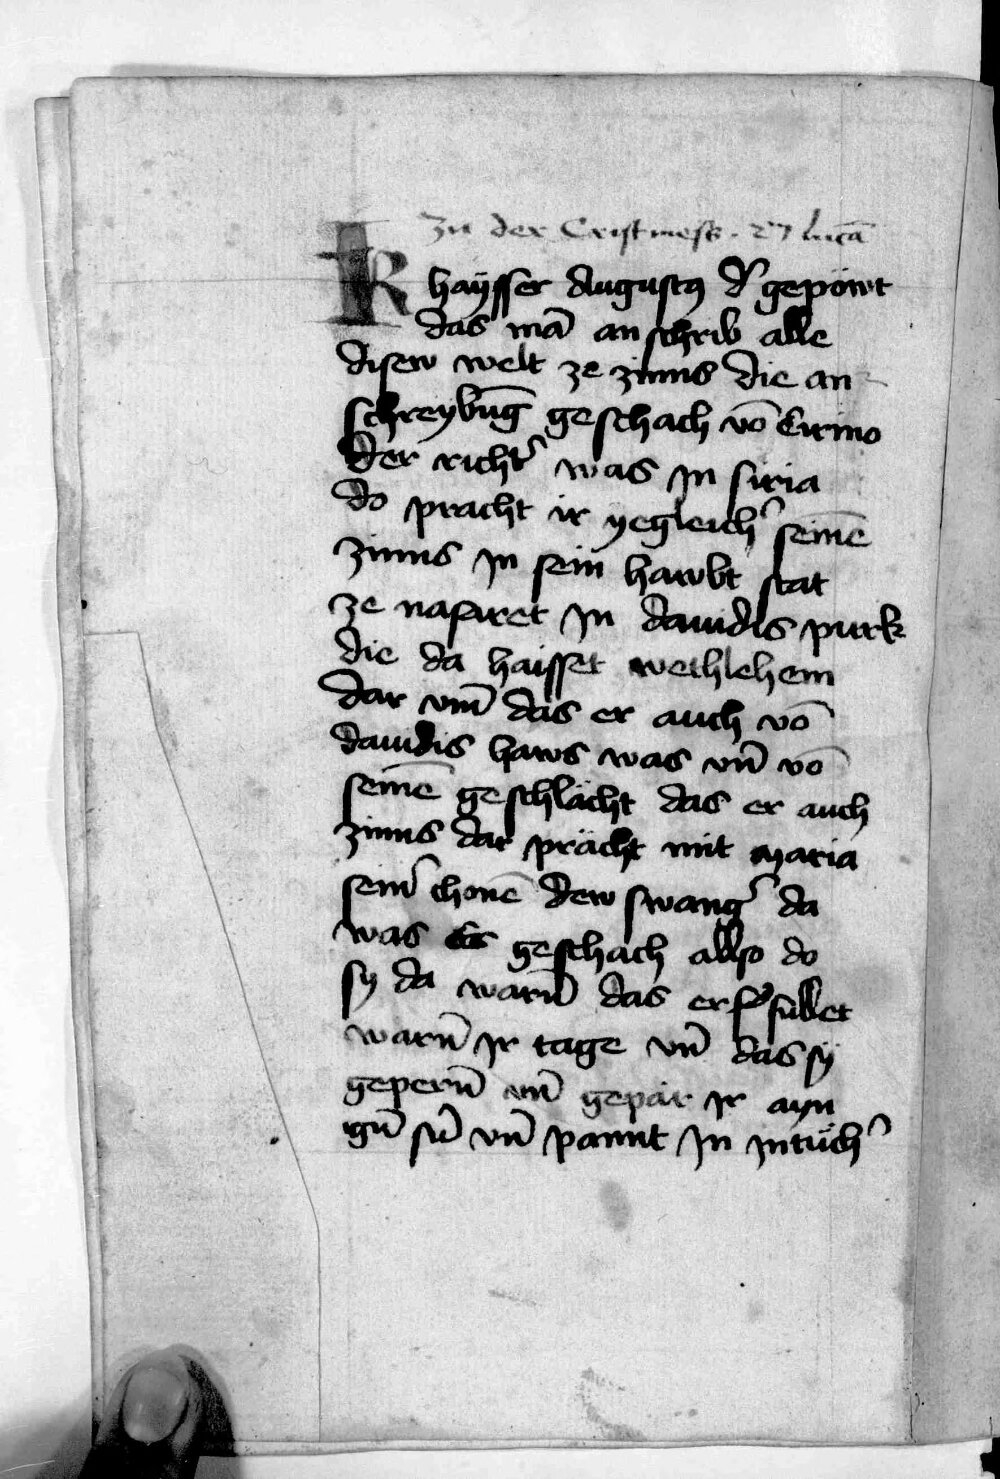 Zu der Cristmess . Lucā
Khaÿsser Augustꝯ d͛ gepöwt
das mā an schrib alle
disew welt ze zinns die an
schreybūg geschach vō Cirino
der richt͛ was in siria
do pracht ir yegleich͛ seinē
zinns jn sein hawbt stat
ze nasaret jn dauidis purk
die da haisset wethlehem
dar vm̄ das er auch vō
dauidis haws was vn̄ vō
seinē geschlächt das er auch
zinns dar prächt mit maria
sein͛ chonē dew swang͛ da
was Es geschach allso do
sy da warn̄ das er füllet
warn̄ jr tage vn̄ das sÿ
gepern̄ vn̄ gepar jr ayn
ign̄ sun̄ vn̄ pannt jn jn tüch͛